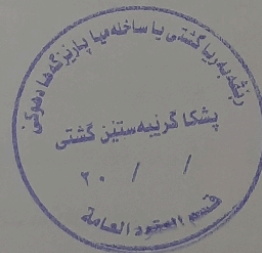 ریڤەبەریا گشتی یا ساخلەمیا پاریزگەها دهوکێ
پشکا گرێبەستێن گشتی
/ / ٢٠
قسم العقود العامة